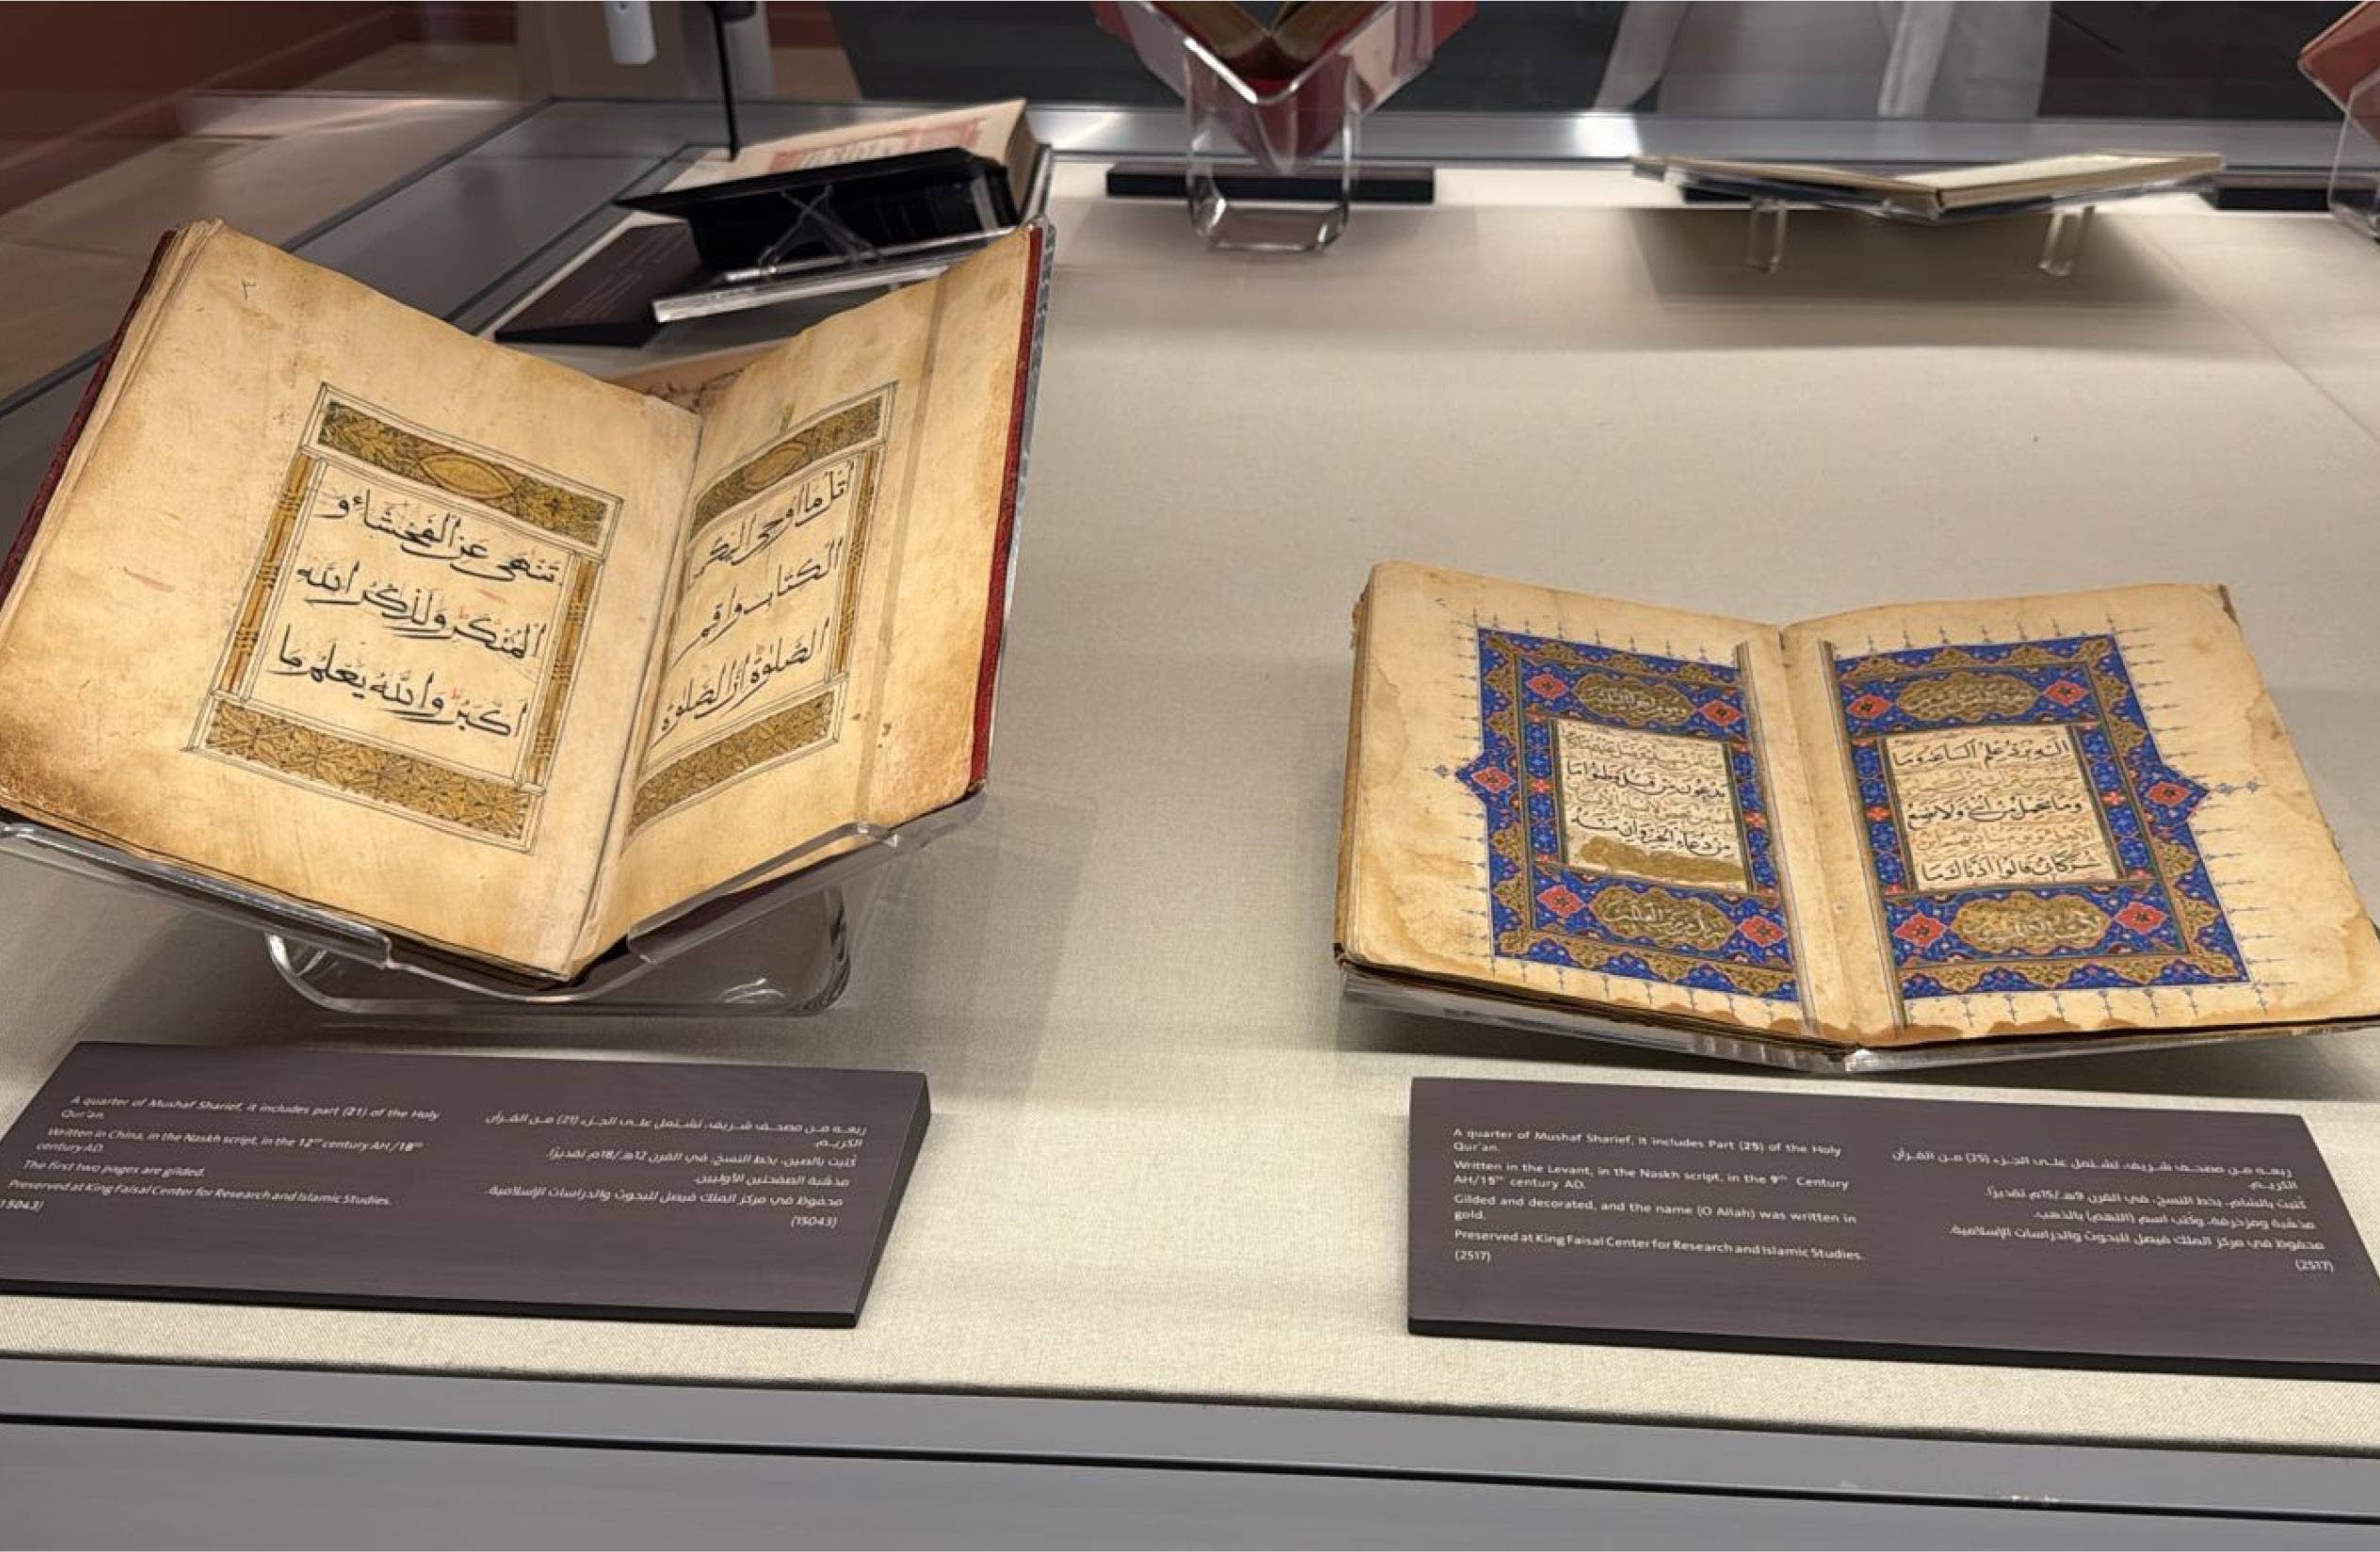 ٣
اتل ما اوحي اليك
الكتاب واقم
الصلوة ان الصلوة
تنهى عن الفحشاء و
المنكر ولذكر الله
اكبر والله يعلم ما
اليه يرد علم الساعة وما
وما تحمل من انثى ولا تضع
شركائي قالوا آذناك ما
يدعون من قبل وظنوا ما
من دعاء الخير وان مسه
A quarter of Mushaf Sharief, it includes part (21) of the Holy
Qur'an.
Written in China, in the Naskh script, in the 12th century AH /18th
century AD.
The first two pages are gilded.
Preserved at King Faisal Center for Research and Islamic Studies.
15043)
ربعه من مصحف شريف، تشتمل على الجزء (21) من القرآن
الكريم.
كُتبت بالصين، بخط النسخ، في القرن 12هـ/18م تقديرًا.
مذهّبة الصفحتين الأوليين.
محفوظ في مركز الملك فيصل للبحوث والدراسات الإسلامية.
(15043)
A quarter of Mushaf Sharief, it includes Part (25) of the Holy
Qur'an.
Written in the Levant, in the Naskh script, in the 9th Century
AH/15th century AD.
Gilded and decorated, and the name (O Allah) was written in
gold.
Preserved at King Faisal Center for Research and Islamic Studies.
(2517)
ربعه من مصحف شريف، تشتمل على الجزء (25) من القرآن
الكريم.
كُتبت بالشام، بخط النسخ، في القرن 9هـ/15م تقديرًا.
مذهّبة ومزخرفة، وكُتب اسم (اللهم) بالذهب.
محفوظ في مركز الملك فيصل للبحوث والدراسات الإسلامية.
(2517)